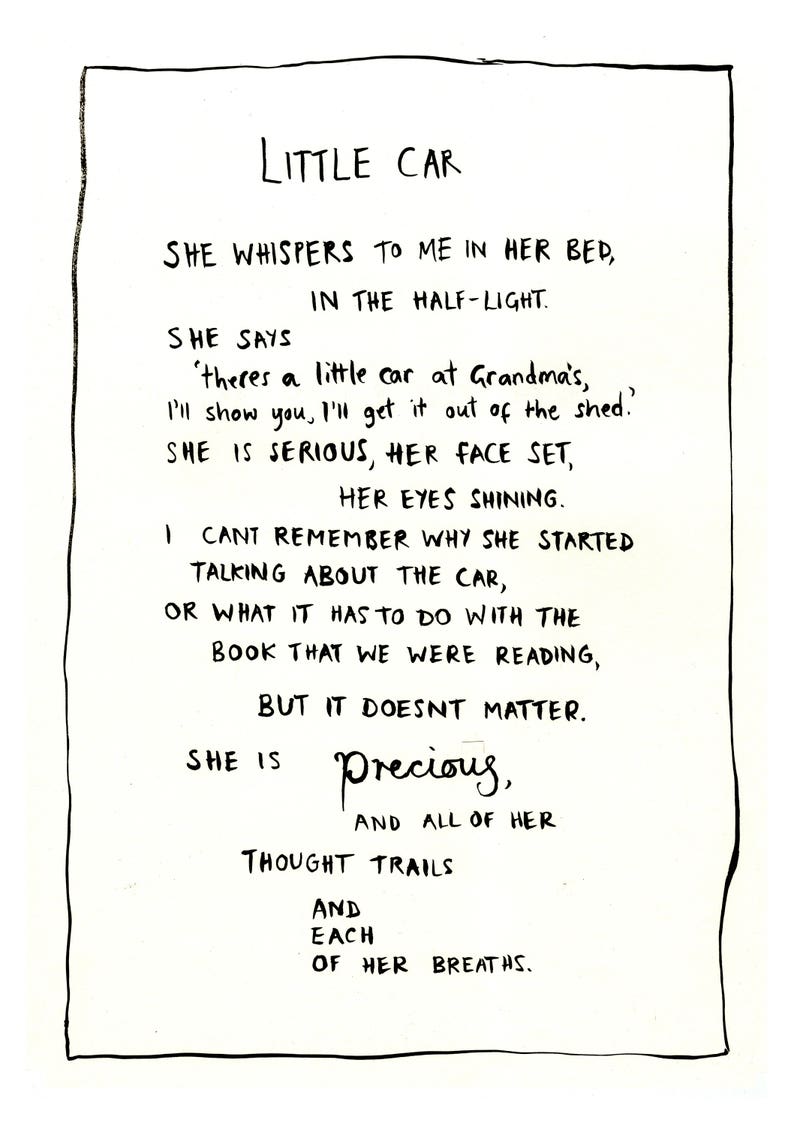 LITTLE CAR
SHE WHISPERS TO ME IN HER BED,
IN THE HALF-LIGHT.
SHE SAYS
'theres a little car at Grandma's,
I'll show you, I'll get it out of the shed.'
SHE IS SERIOUS, HER FACE SET,
HER EYES SHINING.
I CANT REMEMBER WHY SHE STARTED
TALKING ABOUT THE CAR,
OR WHAT IT HAS TO DO WITH THE
BOOK THAT WE WERE READING,
BUT IT DOESNT MATTER.
SHE IS precious,
AND ALL OF HER
THOUGHT TRAILS
AND
EACH
OF HER BREATHS.